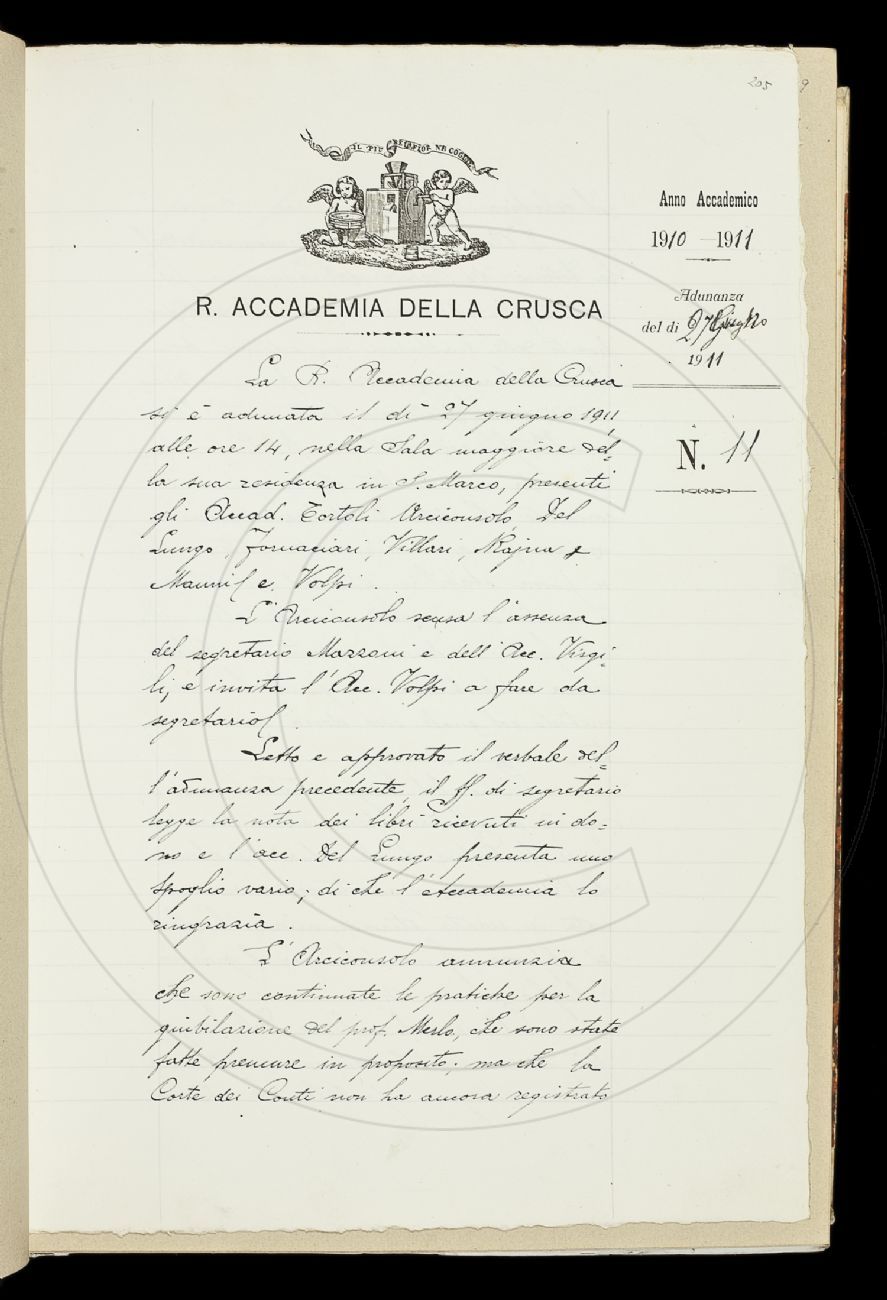 205
9
IL PIÙ BEL FIOR NE COGLIE
R. ACCADEMIA DELLA CRUSCA
Anno Accademico
1910 - 1911
Adunanza
del dì 27 Giugno
1911
N. 11
La R. Accademia della Crusca
si è adunata il dì 27 giugno 1911,
alle ore 14, nella Sala maggiore del=
la sua residenza in S. Marco, presenti
gli Accad. Tortoli Arciconsolo, Del
Lungo, Fornaciari, Villari, Rajna
e Volpi.
L'Arciconsolo scusa l'assenza
del segretario Mazzoni e dell'Acc. Virgi=
li, e invita l'Acc. Volpi a fare da
segretario
Letto e approvato il verbale del=
l'adunanza precedente, il ff. di segretario
legge la nota dei libri ricevuti in do=
no e l'acc. Del Lungo presenta uno
spoglio vario; di che l'Accademia lo
ringrazia.
L'Arciconsolo annunzia
che sono continuate le pratiche per la
giubilazione del prof. Merlo, che sono state
fatte premure in proposito; ma che la
Corte dei Conti non ha ancora registrato